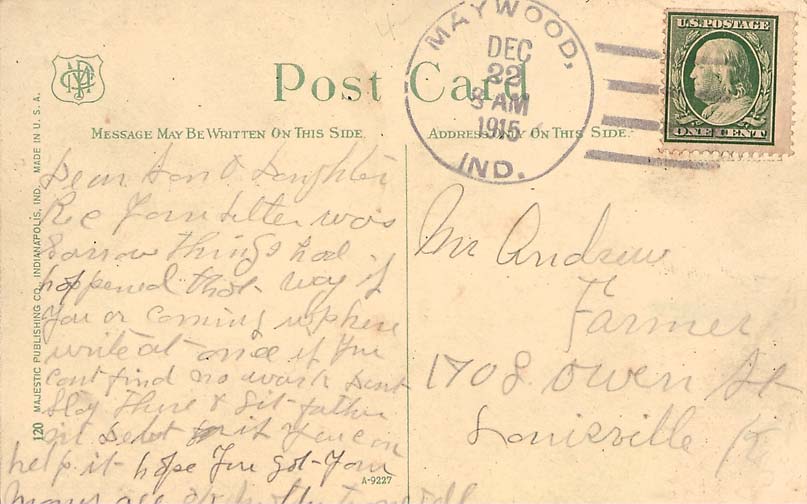 MAYWOOD,
DEC
22
8 AM
1915
IND.
U.S. POSTAGE
ONE CENT
Post Card
MESSAGE MAY BE WRITTEN ON THIS SIDE.
ADDRESS ONLY ON THIS SIDE.
120 MAJESTIC PUBLISHING CO., INDIANAPOLIS, IND. MADE IN U.S.A.
Dear Son & Daughter
Rec Your Letter was
Sorrow things had
happened that way if
you or coming up here
write at once if You
cant find no work dont
Stay there & Git father
in debt if You can
help it hope You got Your
A-9227
Mr Andrew
Farmer
1708 Owen St
Louisville Ky